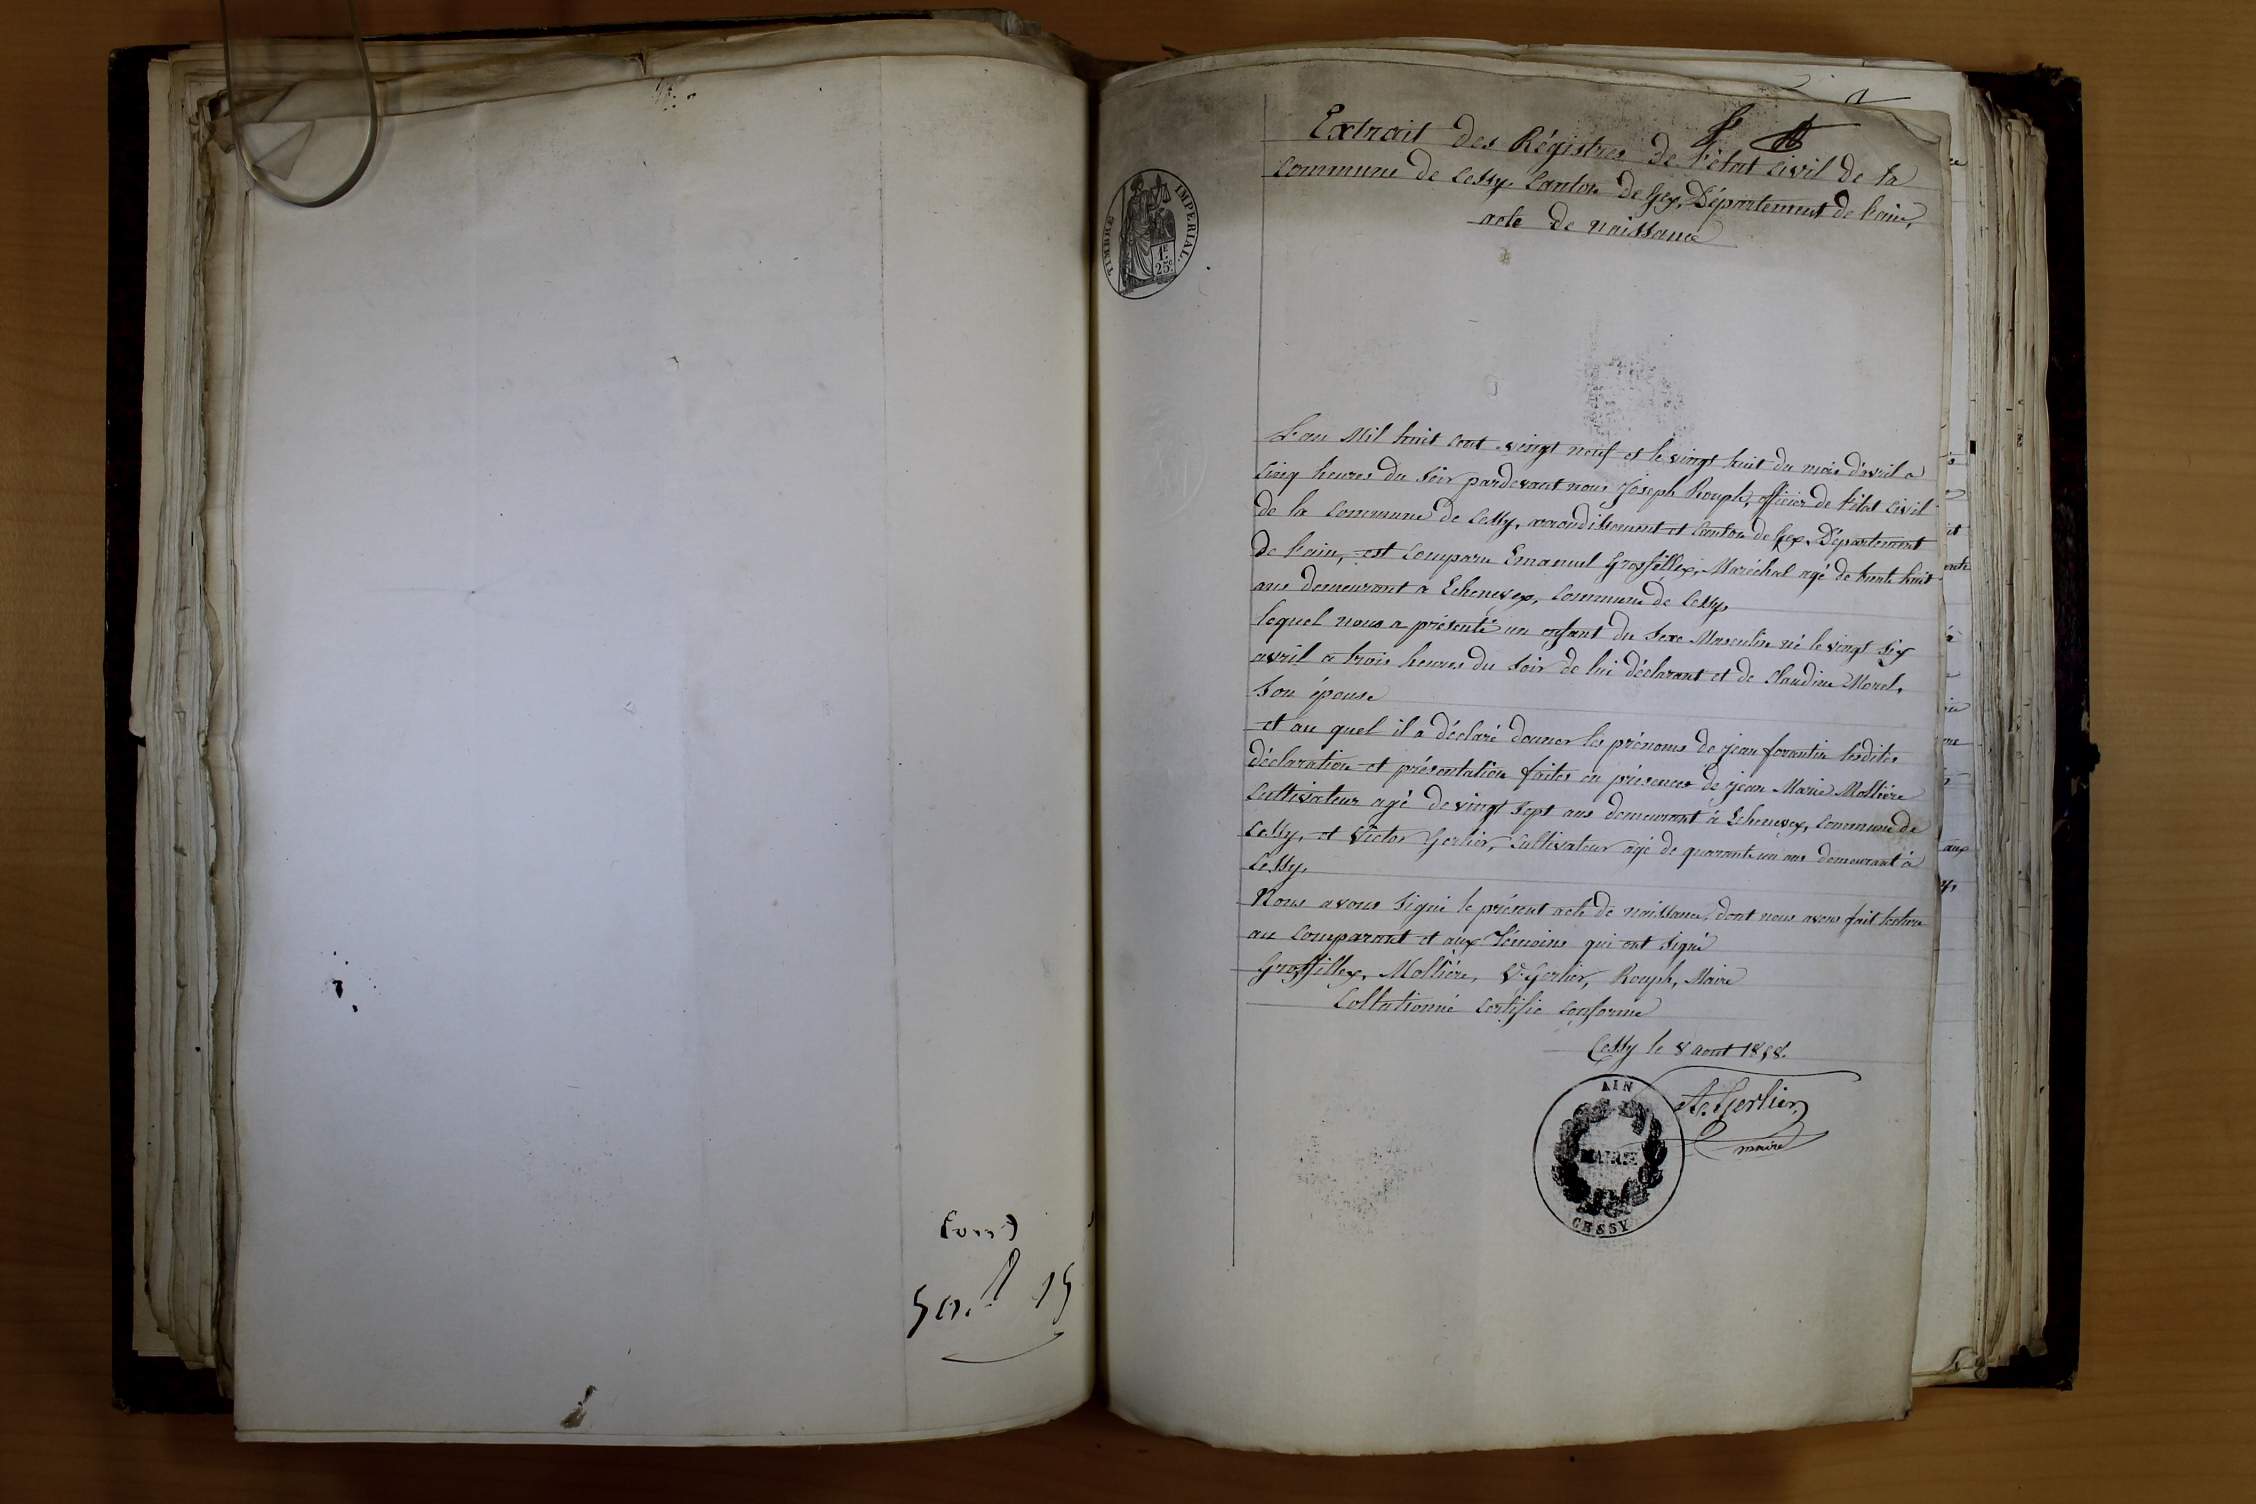 Extrait des Régistres de l'état civil de la
commune de Cessy, Canton de Gex, Département de l'ain,
acte de naissance
TIMBRE IMPERIAL.
1F.
25c
L'an Mil huit cent vingt neuf et le vingt huit du mois d'avril a
Cinq heures du soir pardevant nous Joseph Rouph, officier de l'état civil
de la Commune de Cessy, arrondissement et Canton de Gex, Département
de l'ain, est comparu Emanuel Grosfillex, Maréchal agé de trente huit
ans demeurant a Echenevex, commune de Cessy,
lequel nous a présenté un enfant du sexe Masculin né le vingt six
avril a trois heures du soir de lui déclarant et de Claudine Morel,
son épouse
et au quel il a déclaré donner les prénoms de jean forantin lesdites
déclaration et présentation faites en présences de jean Marie Mollière
Cultivateur agé de vingt sept ans demeurant à Echenevex, commune de
Cessy, et Victor Gerlier, Cultivateur agé de quarante un ans demeurant à
Cessy,
Nous avons signé le présent acte de naissance, dont nous avons fait lecture
au comparant et aux témoins qui ont signé
Grosfillex, Mollière, V. Gerlier, Rouph, Maire
Collationné certifié conforme
Cessy le 8 aout 1858.
A. Gerlier,
maire
AIN
MAIRIE
CESSY
15